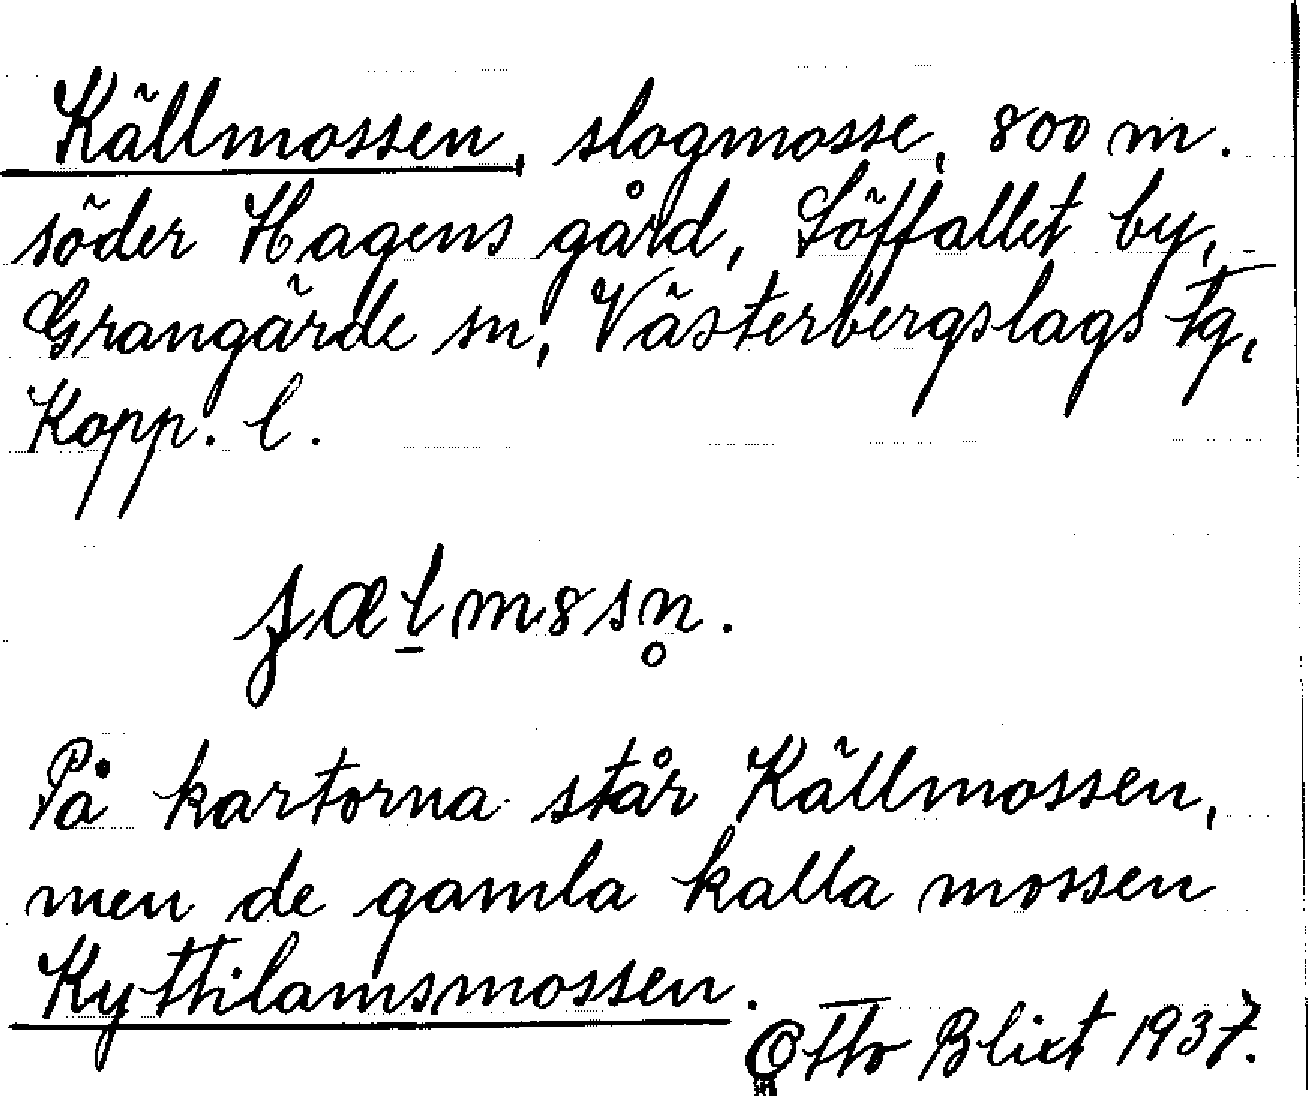 Källmossen, slogmosse, 800 m.
söder Hagens gård, Löffallet by,
Grangärde sn, Västerbergslags tg,
Kopp. l.
På kartorna står Källmossen,
men de gamla kalla mossen
Kyttilamsmossen.
Otto Blixt 1937.